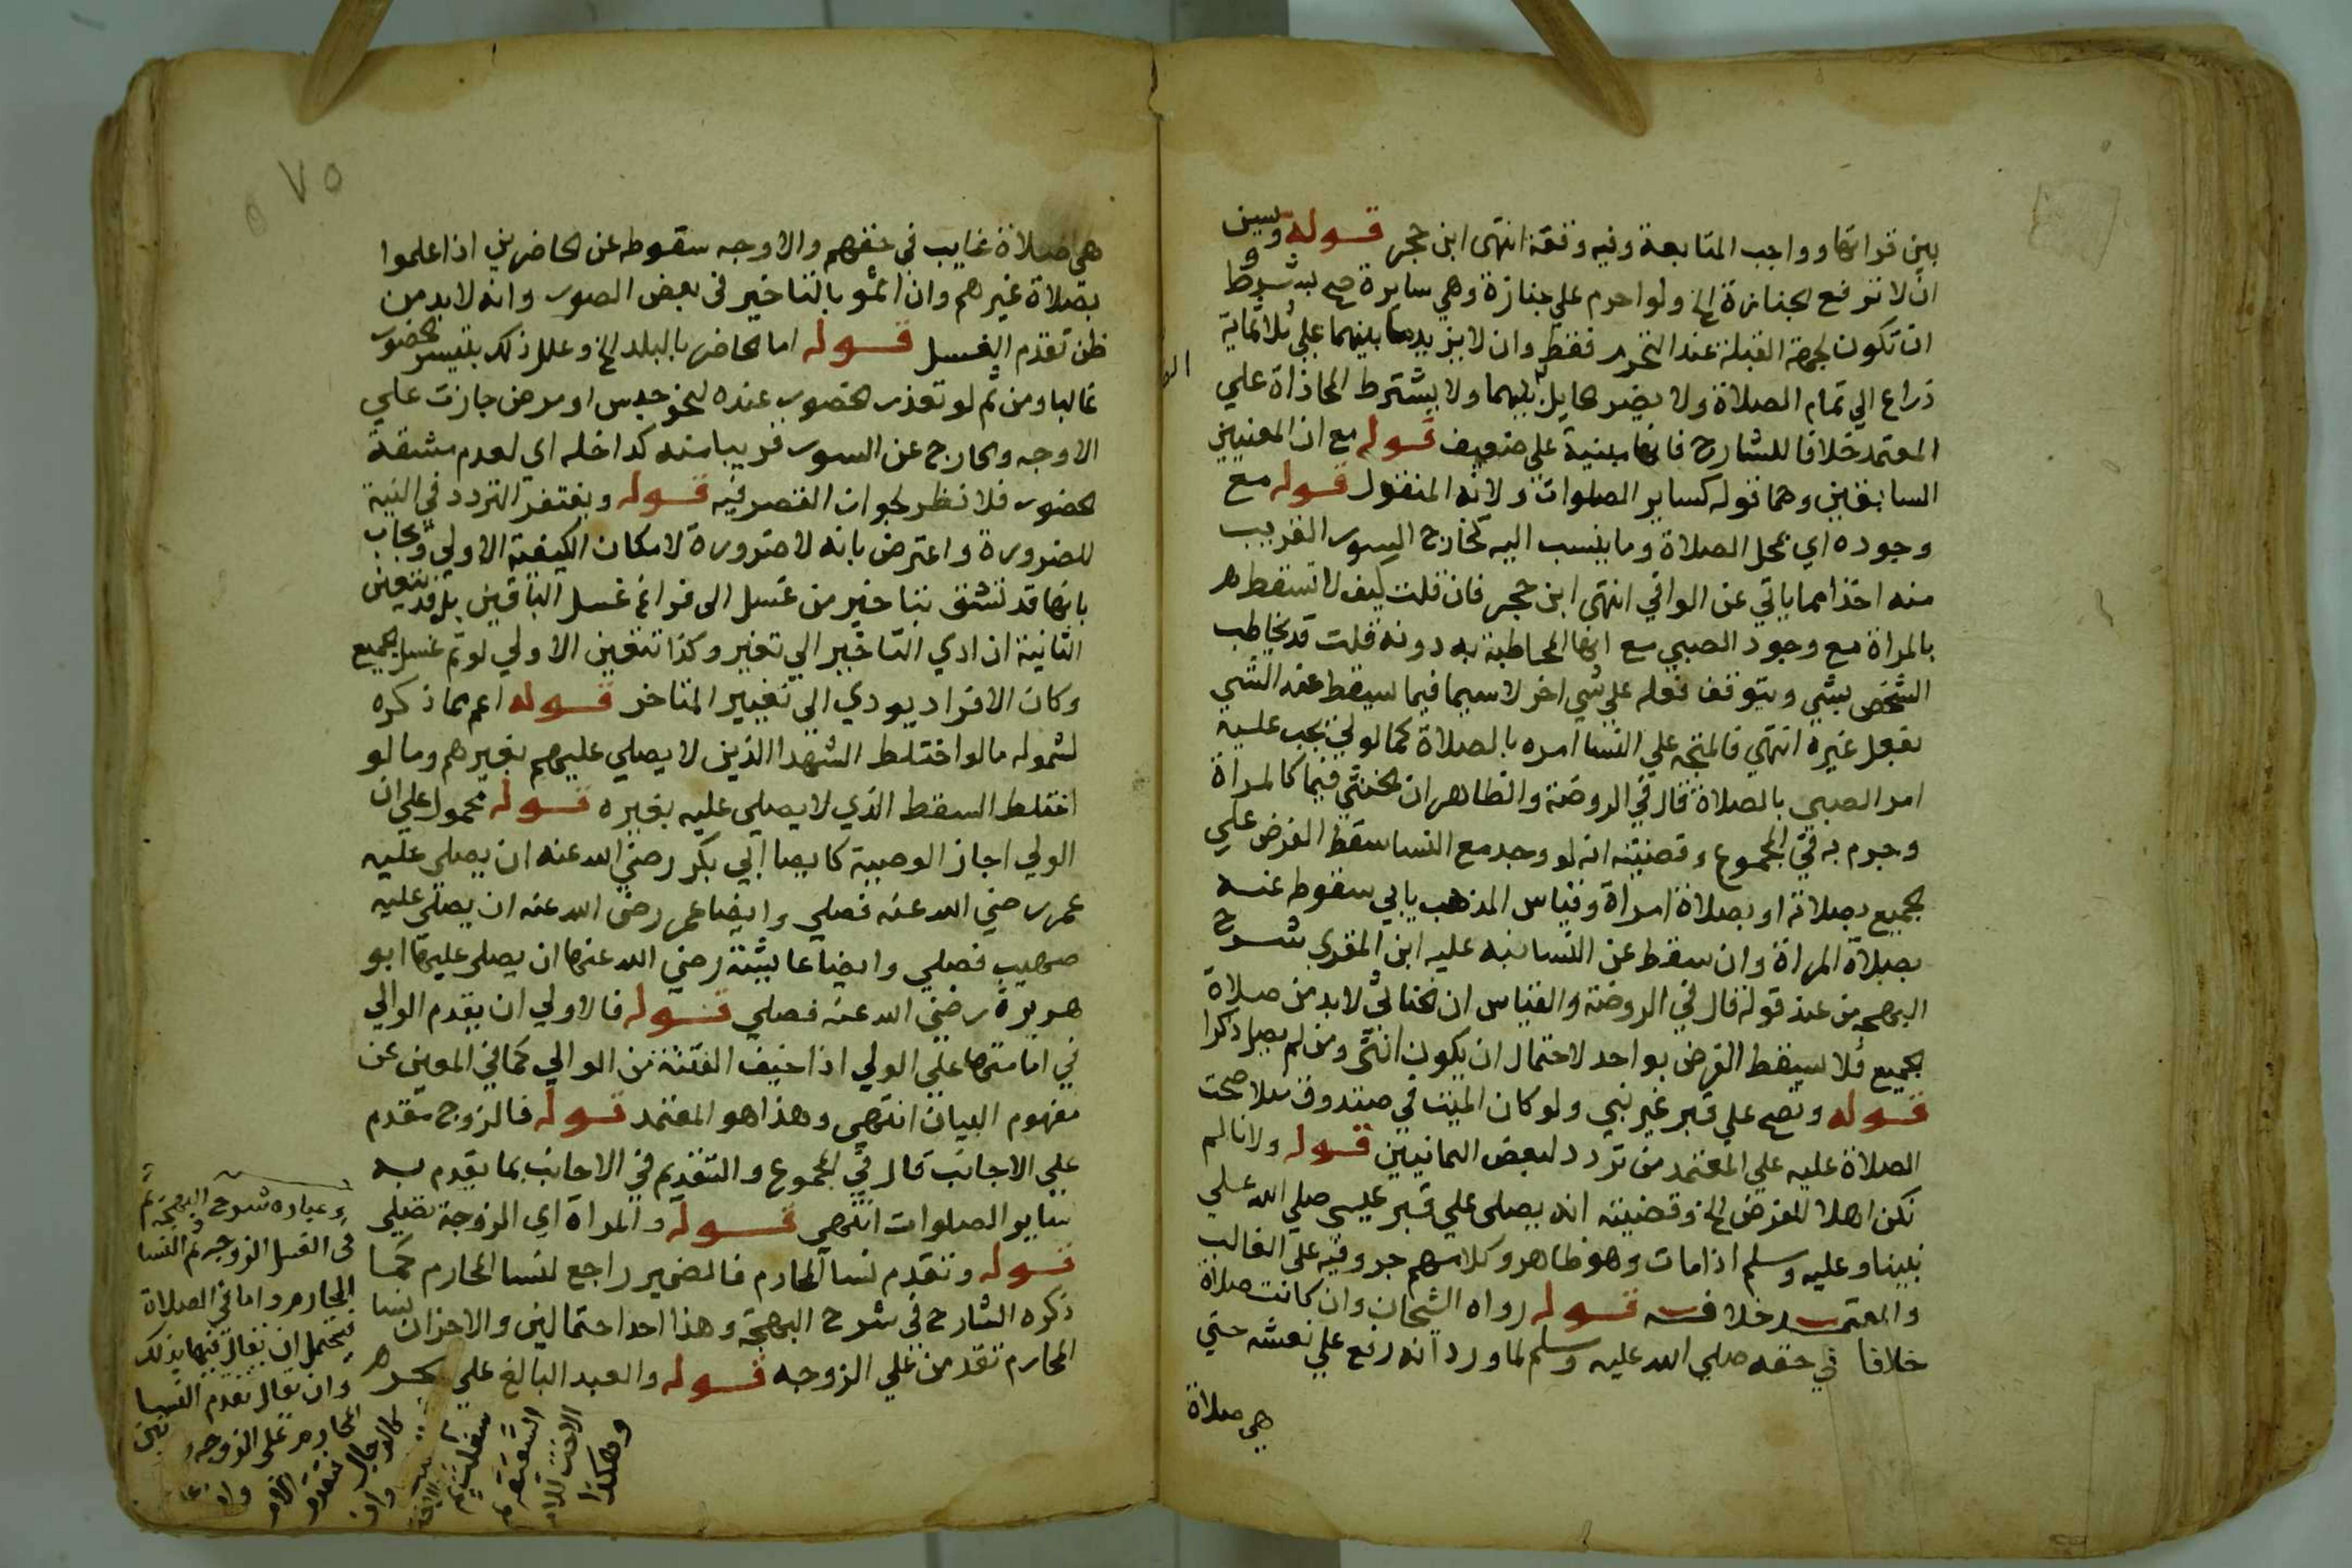 بين قراتها وواجب المتابعة وفيه وقفة انتهى ابن حجر قوله ويسن
ان لا ترفع الجنازة الخ ولو احرم علي جنازة وهي سايرة صح بشرط
ان تكون لجهة القبلة عند التحرم فقط وان لا يزيد ما بينهما علي ثلاثماية
ذراع الي تمام الصلاة ولا يضر حايل بينهما ولا يشترط المحاذاة علي
المعتمد خلافا للشارح فانها مبنية علي ضعيف قوله مع ان المعنيين
السابقين وهما قوله كساير الصلوات ولانه المنقول قوله مع
وجوده اي بمحل الصلاة وما ينسب اليه كخارج السور القريب
منه اخذا مما ياتي عن الوافي انتهى ابن حجر فان قلت كيف لا تسقط
بالمراة مع وجود الصبي مع انها المخاطبة به دونه قلت قد يخاطب
الشخص بشي ويتوقف فعله علي شي اخر لا سيما فيما يسقط عنه الشي
بفعل غيره انتهي فالمتجه علي النسا امره بالصلاة كما لولي يجب عليه
امر الصبي بالصلاة قال في الروضة والظاهر ان الخنثي فيما كالمراة
وجزم به في المجموع وقضيته انه لو وجد مع النسا سقط الفرض علي
الجميع بصلاته او بصلاة امراة وقياس المذهب يابي سقوط عنه
بصلاة المراة وان سقط عن النسا نبه عليه ابن المقري بشرح
البهجة من عند قوله قال في الروضة والقياس ان الخناثي لا بد من صلاة
الجميع فلا يسقط الفرض بواحد لاحتمال ان يكون انثى ومن لم يصل ذكرا
قوله وتصح علي قبر غير نبي ولو كان الميت في صندوق مثلا صحت
الصلاة عليه علي المعتمد من تردد لبعض اليمانيين قوله ولانا لم
نكن اهلا للفرض الخ وقضيته انه يصلى علي قبر عيسى صلي الله علي
نبينا وعليه وسلم اذا مات وهو ظاهر وكلامهم جروفيه علي الغالب
والمعتمد خلافه قوله رواه الشيخان وان كانت صلاة
خلافا في حقه صلي الله عليه وسلم لما ورد انه رفع علي نعشه حتي
هي صلاة
٧٥
هي صلاة غايب في حقهم والاوجه سقوطه عن الحاضرين اذا علموا
بصلاة غيرهم وان اثموا بالتاخير في بعض الصور وانه لا بد من
ظن تقدم الغسل قوله اما الحاضر بالبلد الخ وعلل ذلك بتيسر الحضور
غالبا ومن ثم لو تعذر الحضور عنده لنحو حبس او مرض جازت علي
الاوجه والخارج عن السور قريبا منه كداخله اي لعدم مشقة
الحضور فلا نظر لجواز القصر فيه قوله ويغتفر التردد في النية
للضرورة واعترض بانه لا ضرورة لامكان الكيفية الاولي ويجاب
بانها قد تشق بتاخير من غسل الى فراغ غسل الباقين بل قد يتعين
الثانية ان ادي التاخير الي تغير وكذا تتعين الاولي لو تم غسل الجميع
وكان الافراد يودي الي تغيير المتاخر قوله اعم مما ذكره
لشموله ما لو اختلط الشهدا الذين لا يصلي عليهم بغيرهم وما لو
اختلط السقط الذي لا يصلي عليه بغيره قوله محمول علي ان
الولي اجاز الوصية كايصا ابي بكر رضي الله عنه ان يصلي عليه
عمر رضي الله عنه فصلي وايضا عمر رضي الله عنه ان يصلي عليه
صهيب فصلي وايضا عايشة رضي الله عنها ان يصلي عليها ابو
هريرة رضي الله عنه فصلي قوله فالاولي ان يقدم الوالي
في امامتها علي الولي اذا خيف الفتنة من الوالي كما في المعين عن
مفهوم البيان انتهي وهذا هو المعتمد قوله فالزوج مقدم
علي الاجانب قال في المجموع والتقديم في الاجانب بما يقدم به
ساير الصلوات انتهي قوله والمراة اي الزوجة تصلي
قوله وتقدم نسا المحارم فالضمير راجع لنسا المحارم كما
ذكره الشارح في شرح البهجة وهذا احد احتمالين والاخر ان نسا
المحارم تقدمن علي الزوجه قوله والعبد البالغ علي الحر
وعبارة شرح البهجة ثم
في الغسل الزوجة ثم النسا
المحارم واما في الصلاة
فيحتمل ان يقال فيها بذلك
وان يقال تقدم النسا
المحارم علي الزوجه
كالرجال
وهكذا